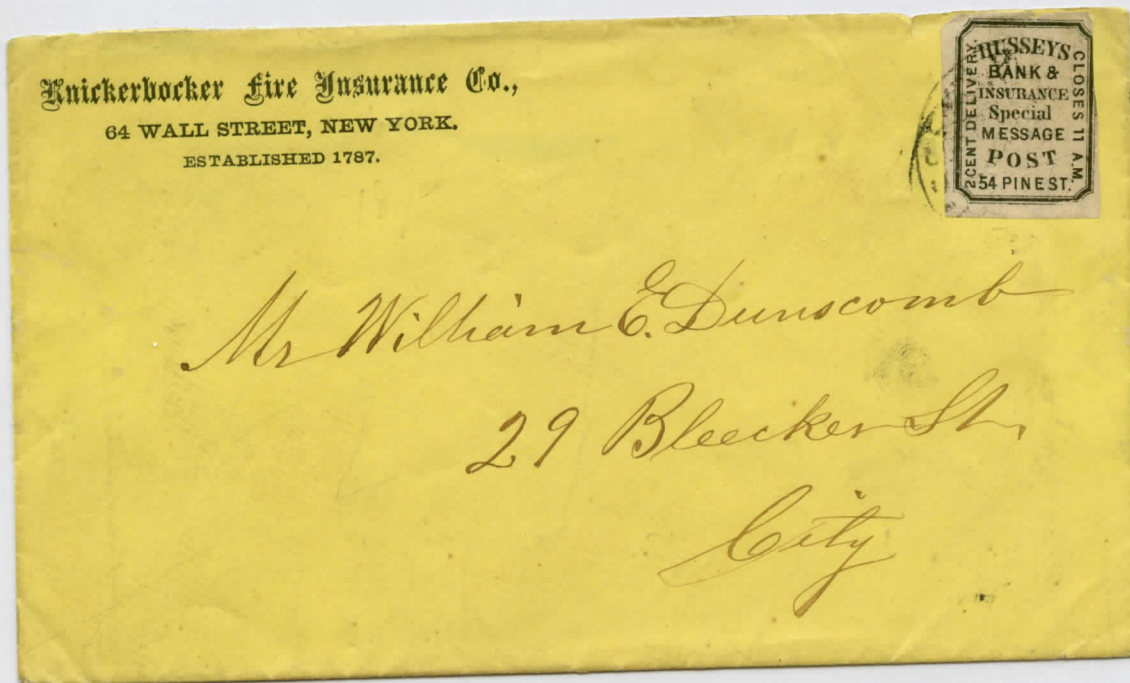 Knickerbocker Fire Insurance Co.,
64 WALL STREET, NEW YORK.
ESTABLISHED 1787.
HUSSEYS
BANK &
INSURANCE
Special
MESSAGE
POST
54 PINE ST.
2 CENT DELIVERY.
CLOSES 11 A.M.
Mr William E. Dunscomb
29 Bleecker St.
City